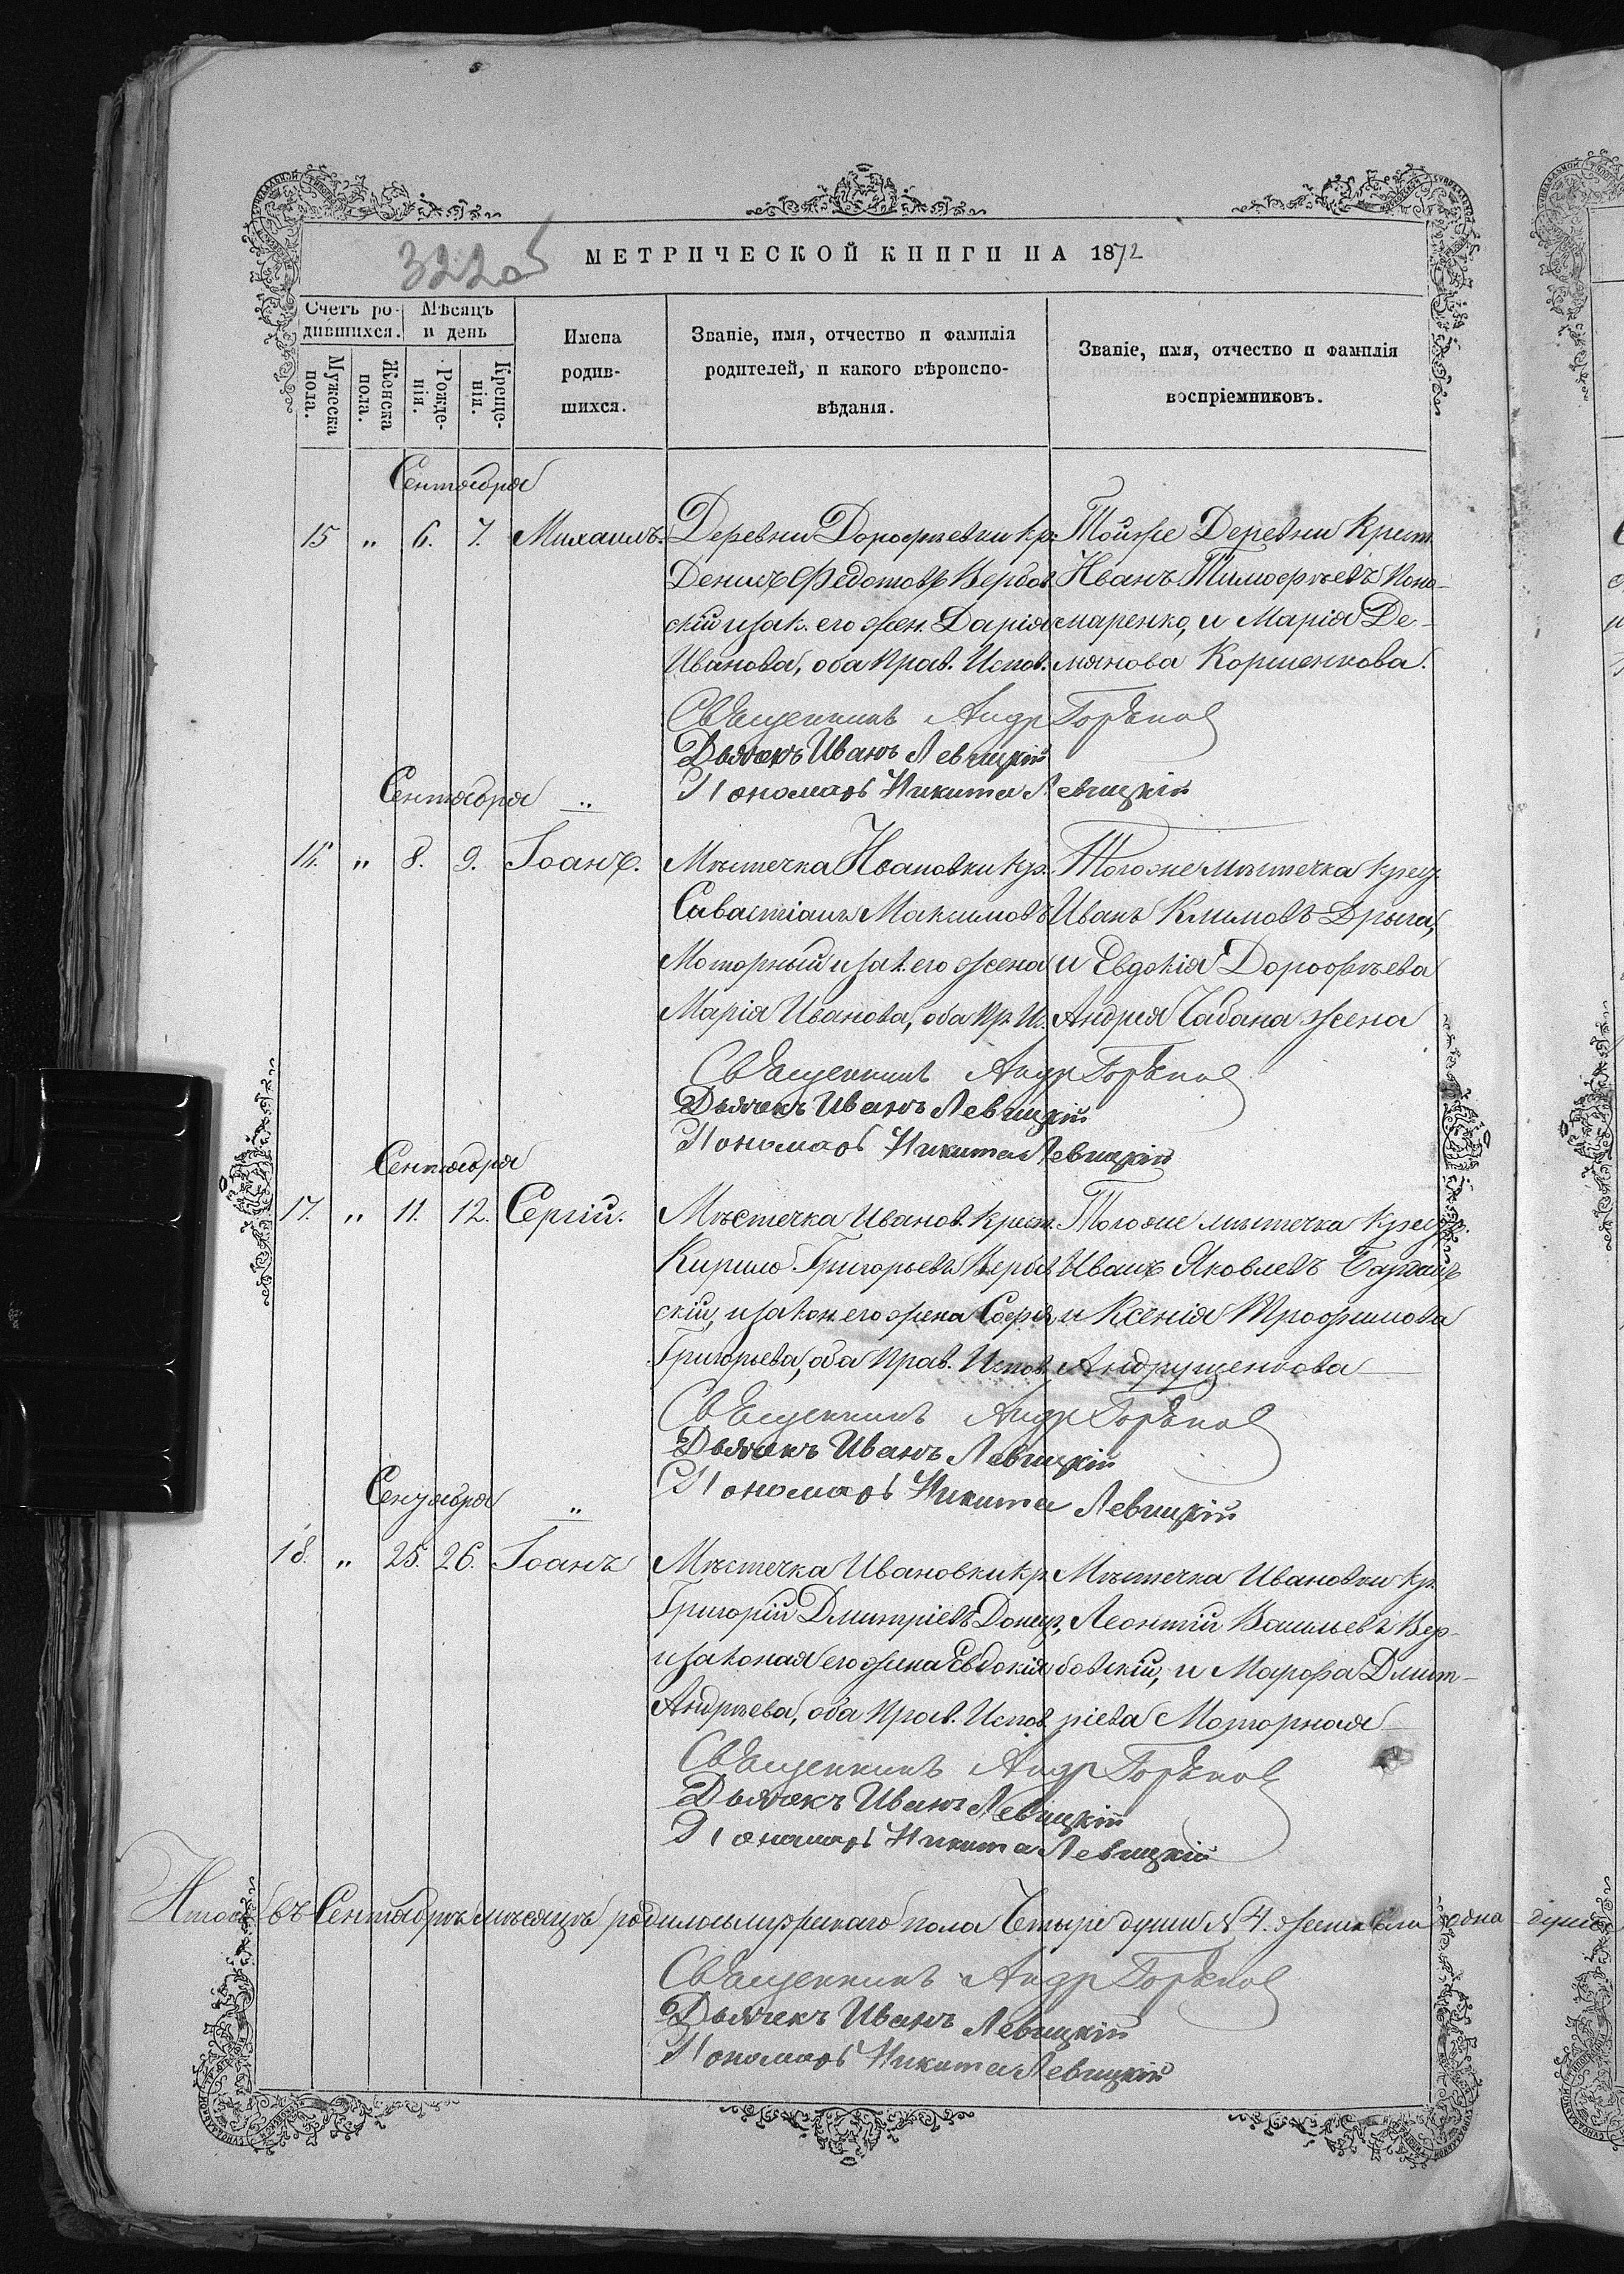 322об
МЕТРИЧЕСКОЙ КНИГИ НА 1872
Счетъ родившихся.
Мѣсяцъ и день
Мужеска пола.
Женска пола.
Рожденія.
Крещенія.
Имена родившихся.
Званіе, имя, отчество и фамилія родителей, и какого вѣроисповѣданія.
Званіе, имя, отчество и фамилія воспріемниковъ.
Сентября
15 " 6. 7. Михаилъ.
Деревни Дорофѣевки кр.
Денисъ Федотовъ Вербов
скій и зак. его жен. Дарія
Иванова, оба прав. Испов.
Тойже Деревни Крест.
Иванъ Тимофѣевъ Поно-
маренко, и Марія Де-
мянова Коршенкова.
Священникъ Андр
Дьячекъ Иванъ Левицкій
Пономарь Никита Левицкій
Сентября "
16. " 8. 9. Іоанъ.
Мѣстечка Ивановки Кр.
Савастіанъ Максимовъ
Моторный и зак. его жена
Марія Иванова, оба Пр. Ис.
Тогоже мѣстечка крест.
Иванъ Климовъ Дрыга,
и Евдокія Дорофѣева
Андрея Чабана жена
Священникъ Андр
Дьячекъ Иванъ Левицкій
Пономарь Никита Левицкій
Сентября
17. " 11. 12. Сергій.
Мѣстечка Иванов. Крест.
Кирило Григорьевъ Вербов
скій, и закон. его жена Софія
Григорьева, оба Прав. Испов.
Тогоже мѣстечка крест.
Иванъ Яковлевъ
и Ксенія Трофимова
Андрущенкова
Священникъ Андр
Дьячекъ Иванъ Левицкій
Пономарь Никита Левицкій
Сентября "
18. " 25. 26. Іоанъ
Мѣстечка Ивановки кр.
Григорій Дмитріевъ Донец,
и законая его жена Евдокія
Андрѣева, оба Прав. Испов.
Мѣстечка Ивановки Кр.
Леонтій Васильевъ Вер-
бовскій, и Марфа Дмит-
ріева Моторная
Священникъ Андр
Дьячекъ Иванъ Левицкій
Пономарь Никита Левицкій
Итого въ Сентябрѣ мѣсяцѣ родилось мужескаго пола Четыре души № 4. одна душа
Священникъ Андр
Дьячекъ Иванъ Левицкій
Пономарь Никита Левицкій